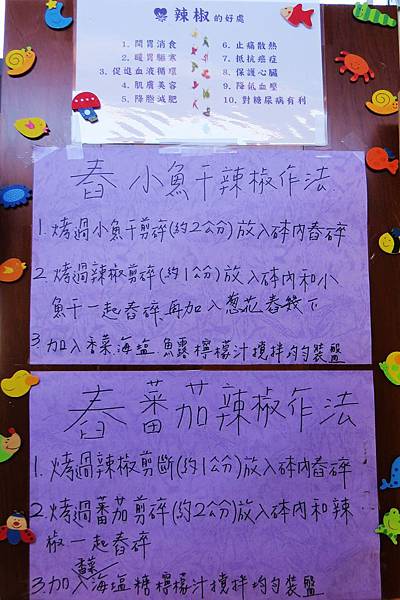 辣椒的好處
1. 開胃消食
2. 暖胃驅寒
3. 促進血液循環
4. 肌膚美容
5. 降脂減肥
6. 止痛散熱
7. 抵抗癌症
8. 保護心臟
9. 降低血壓
10. 對糖尿病有利
舂小魚干辣椒作法
1. 烤過小魚干剪碎(約2公分)放入砵內舂碎
2. 烤過辣椒剪碎(約1公分)放入砵內和小
魚干一起舂碎再加入蔥花舂幾下
3. 加入香菜海盐魚露檸檬汁攪拌均勻裝盤
舂蕃茄辣椒作法
1. 烤過辣椒剪斷(約1公分)放入砵內舂碎
2. 烤過蕃茄剪碎(約2公分)放入砵內和辣
椒一起舂碎
3. 加入香菜海盐糖檸檬汁攪拌均勻裝盤